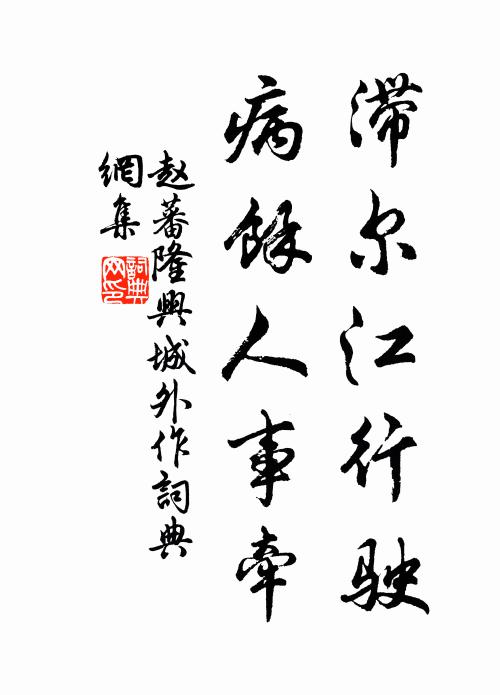 滞尔江行駛
病餘人事牽
赵蕃隆興城外作詞典
網集
詞典
网印